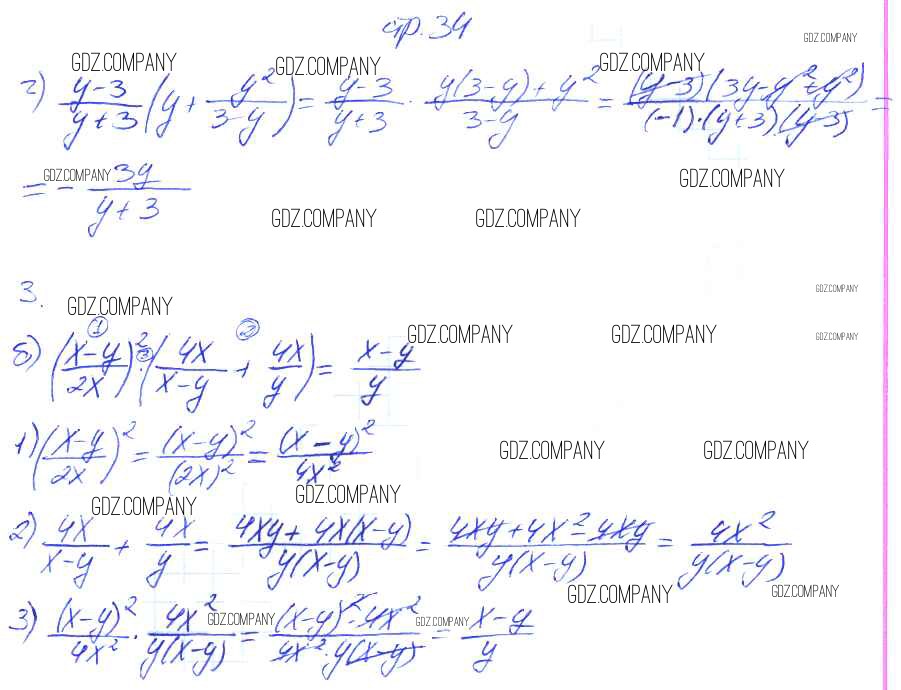 стр. 34
GDZ.COMPANY GDZ.COMPANY GDZ.COMPANY GDZ.COMPANY
г) \frac{y-3}{y+3}(y+\frac{y^2}{3-y})=\frac{y-3}{y+3}\cdot\frac{y(3-y)+y^2}{3-y}=\frac{(y-3)(3y-y^2+y^2)}{(-1)\cdot(y+3)(y-3)}=
=-\frac{3y}{y+3}
GDZ.COMPANY GDZ.COMPANY
GDZ.COMPANY GDZ.COMPANY
3.
GDZ.COMPANY GDZ.COMPANY
① ②
GDZ.COMPANY GDZ.COMPANY GDZ.COMPANY
б) (\frac{x-y}{2x})^2 ③ (\frac{4x}{x-y}+\frac{4x}{y})=\frac{x-y}{y}
1) (\frac{x-y}{2x})^2=\frac{(x-y)^2}{(2x)^2}=\frac{(x-y)^2}{4x^2}
GDZ.COMPANY GDZ.COMPANY
GDZ.COMPANY GDZ.COMPANY
2) \frac{4x}{x-y}+\frac{4x}{y}=\frac{4xy+4x(x-y)}{y(x-y)}=\frac{4xy+4x^2-4xy}{y(x-y)}=\frac{4x^2}{y(x-y)}
GDZ.COMPANY GDZ.COMPANY
3) \frac{(x-y)^2}{4x^2}\cdot\frac{4x^2}{y(x-y)}=\frac{(x-y)^2\cdot4x^2}{4x^2\cdot y(x-y)}=\frac{x-y}{y}
GDZ.COMPANY GDZ.COMPANY